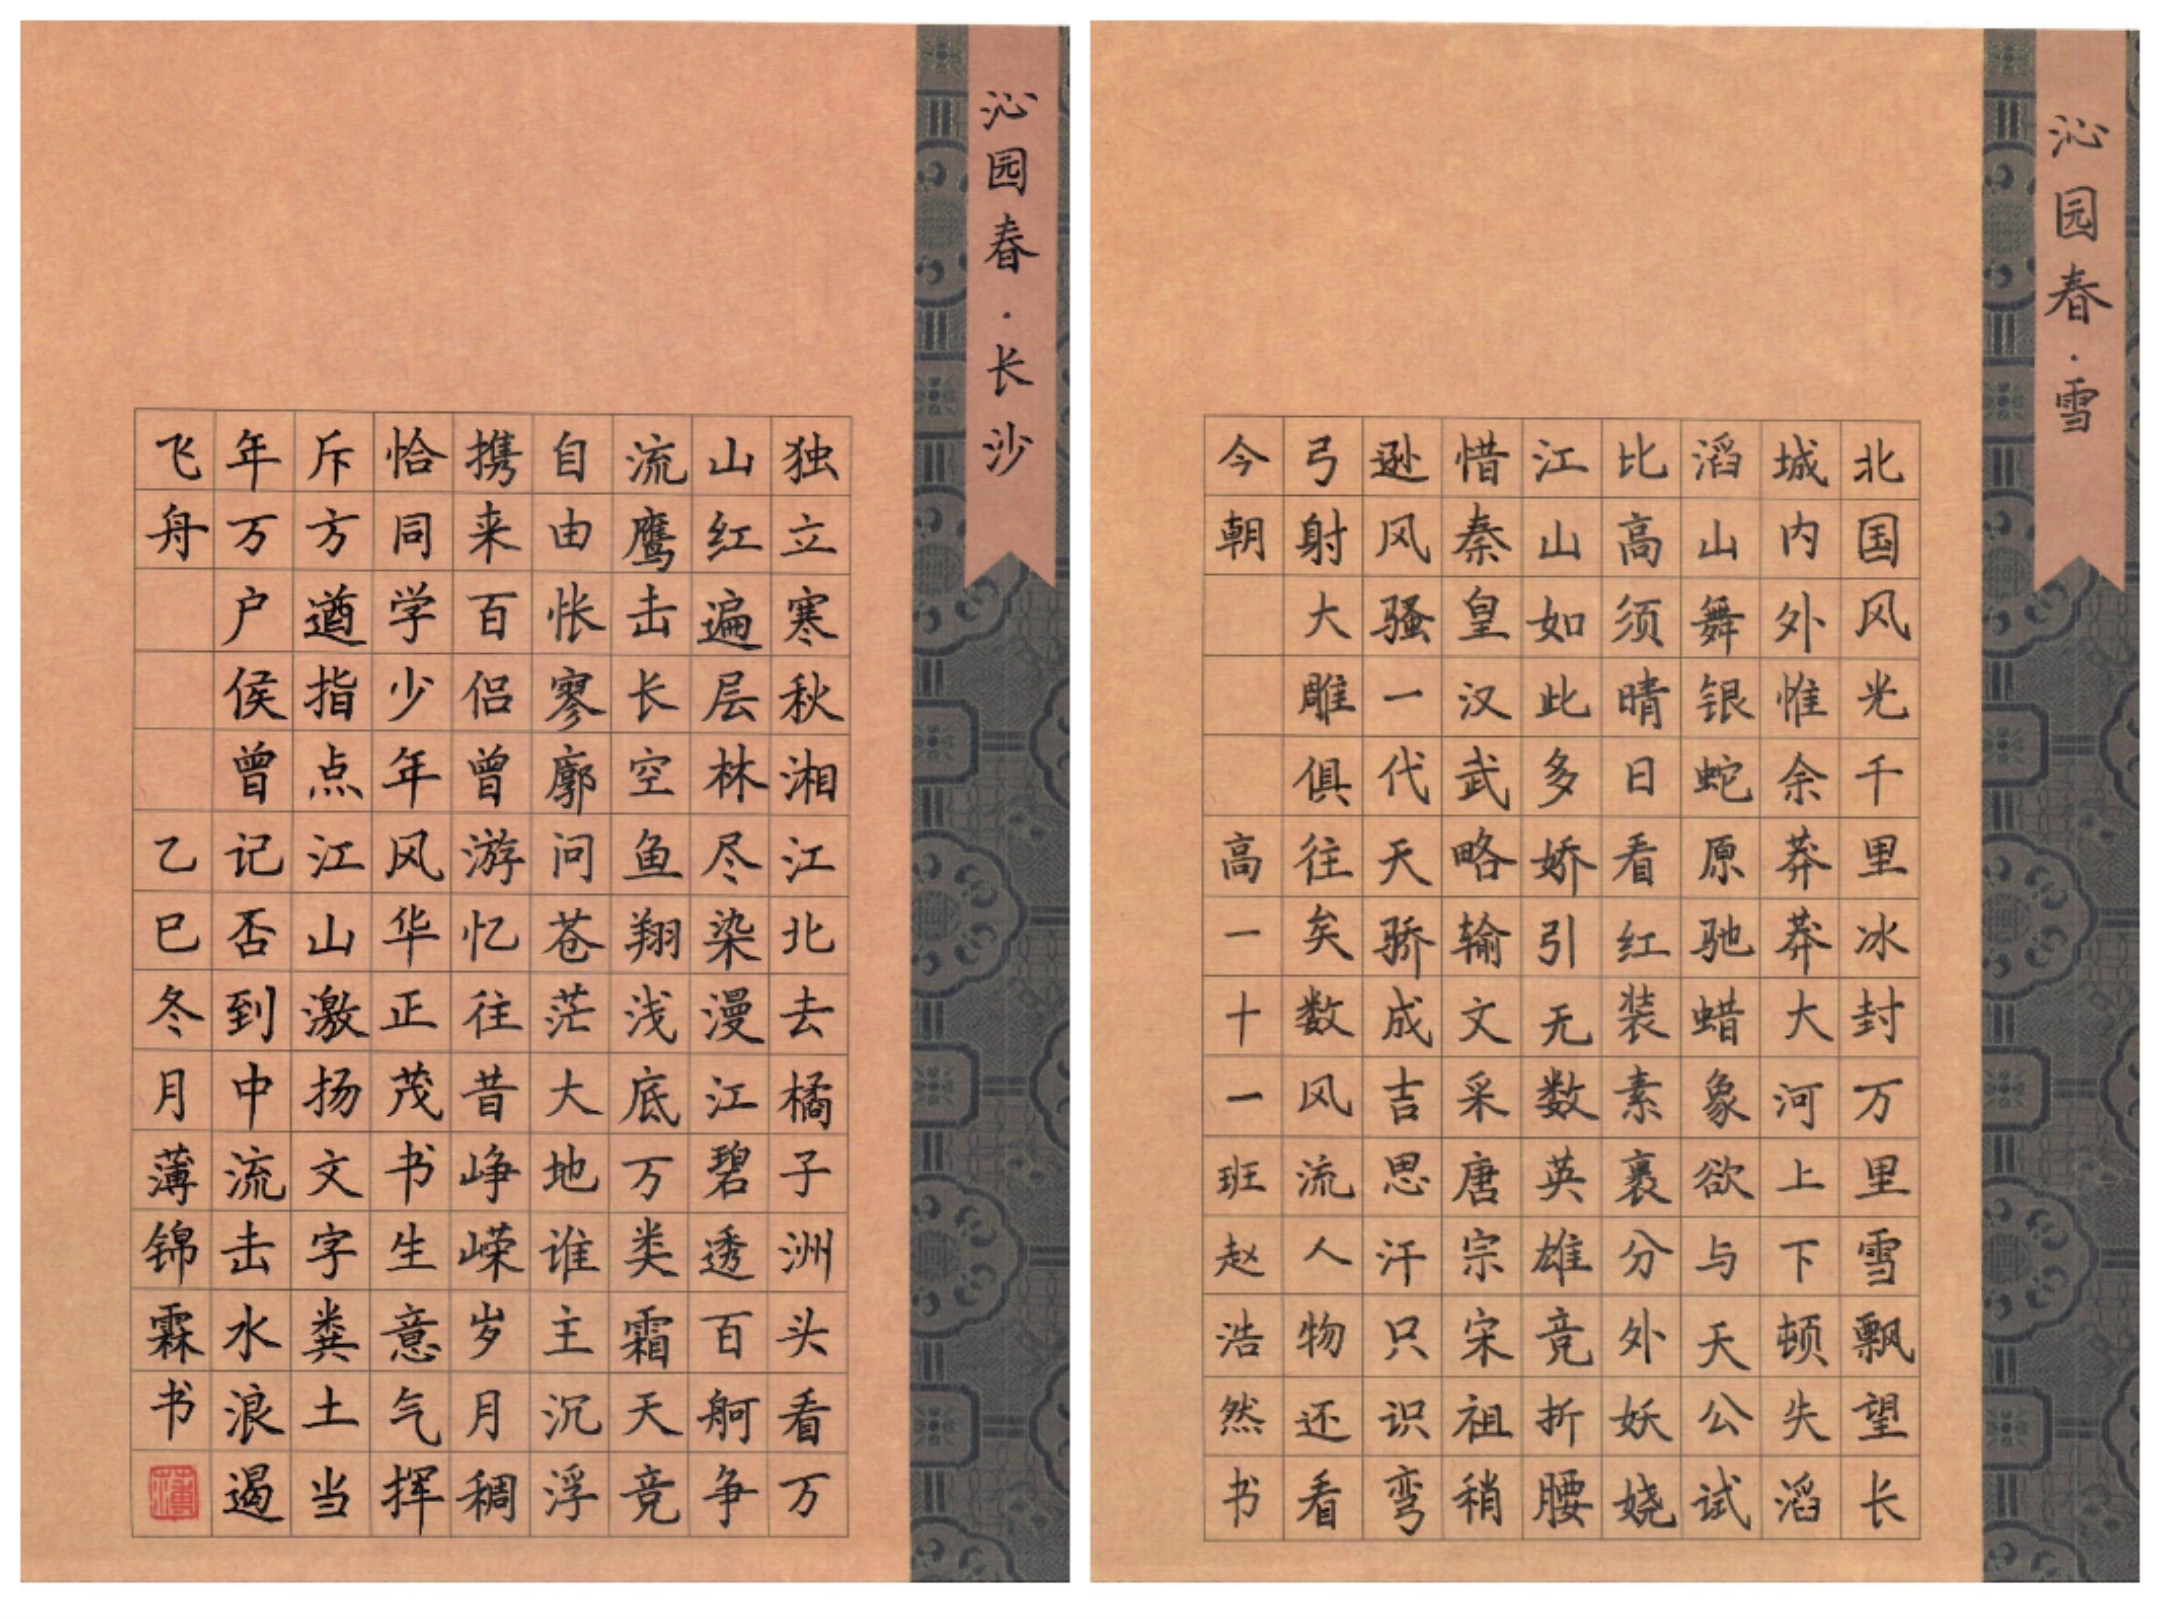 沁园春·长沙
独立寒秋湘江北去橘子洲头看万
山红遍层林尽染漫江碧透百舸争
流鹰击长空鱼翔浅底万类霜天竞
自由怅寥廓问苍茫大地谁主沉浮
携来百侣曾游忆往昔峥嵘岁月稠
恰同学少年风华正茂书生意气挥
斥方遒指点江山激扬文字粪土当
年万户侯曾记否到中流击水浪遏
飞舟
乙巳冬月薄锦霖书
沁园春·雪
北国风光千里冰封万里雪飘望长
城内外惟余莽莽大河上下顿失滔
滔山舞银蛇原驰蜡象欲与天公试
比高须晴日看红装素裹分外妖娆
江山如此多娇引无数英雄竞折腰
惜秦皇汉武略输文采唐宗宋祖稍
逊风骚一代天骄成吉思汗只识弯
弓射大雕俱往矣数风流人物还看
今朝
高一十一班赵浩然书